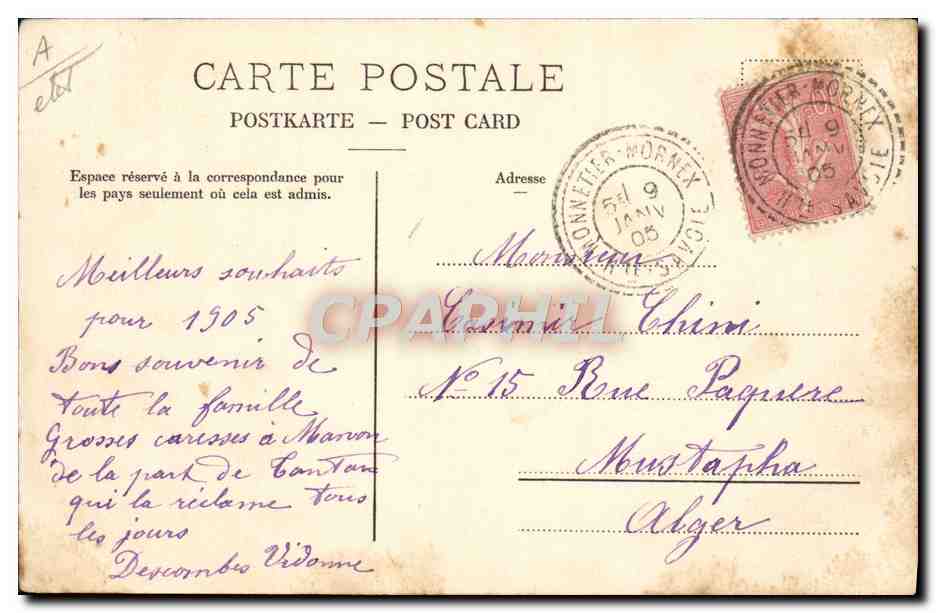 A
CARTE POSTALE
POSTKARTE — POST CARD
Espace réservé à la correspondance pour
les pays seulement où cela est admis.
Adresse
MONNETIER-MORNEX
9
JANV
05
HTE SAVOIE
MONNETIER-MORNEX
9
JANV
05
HTE SAVOIE
Meilleurs souhaits
pour 1905
Bons souvenir de
toute la famille
Grosses caresses à Manon
de la part de Tantan
qui la réclame tous
les jours
Descombes Vidonne
Monsieur
Casimir Thini
No 15 Rue Paquere
Mustapha
Alger
CPAPHIL